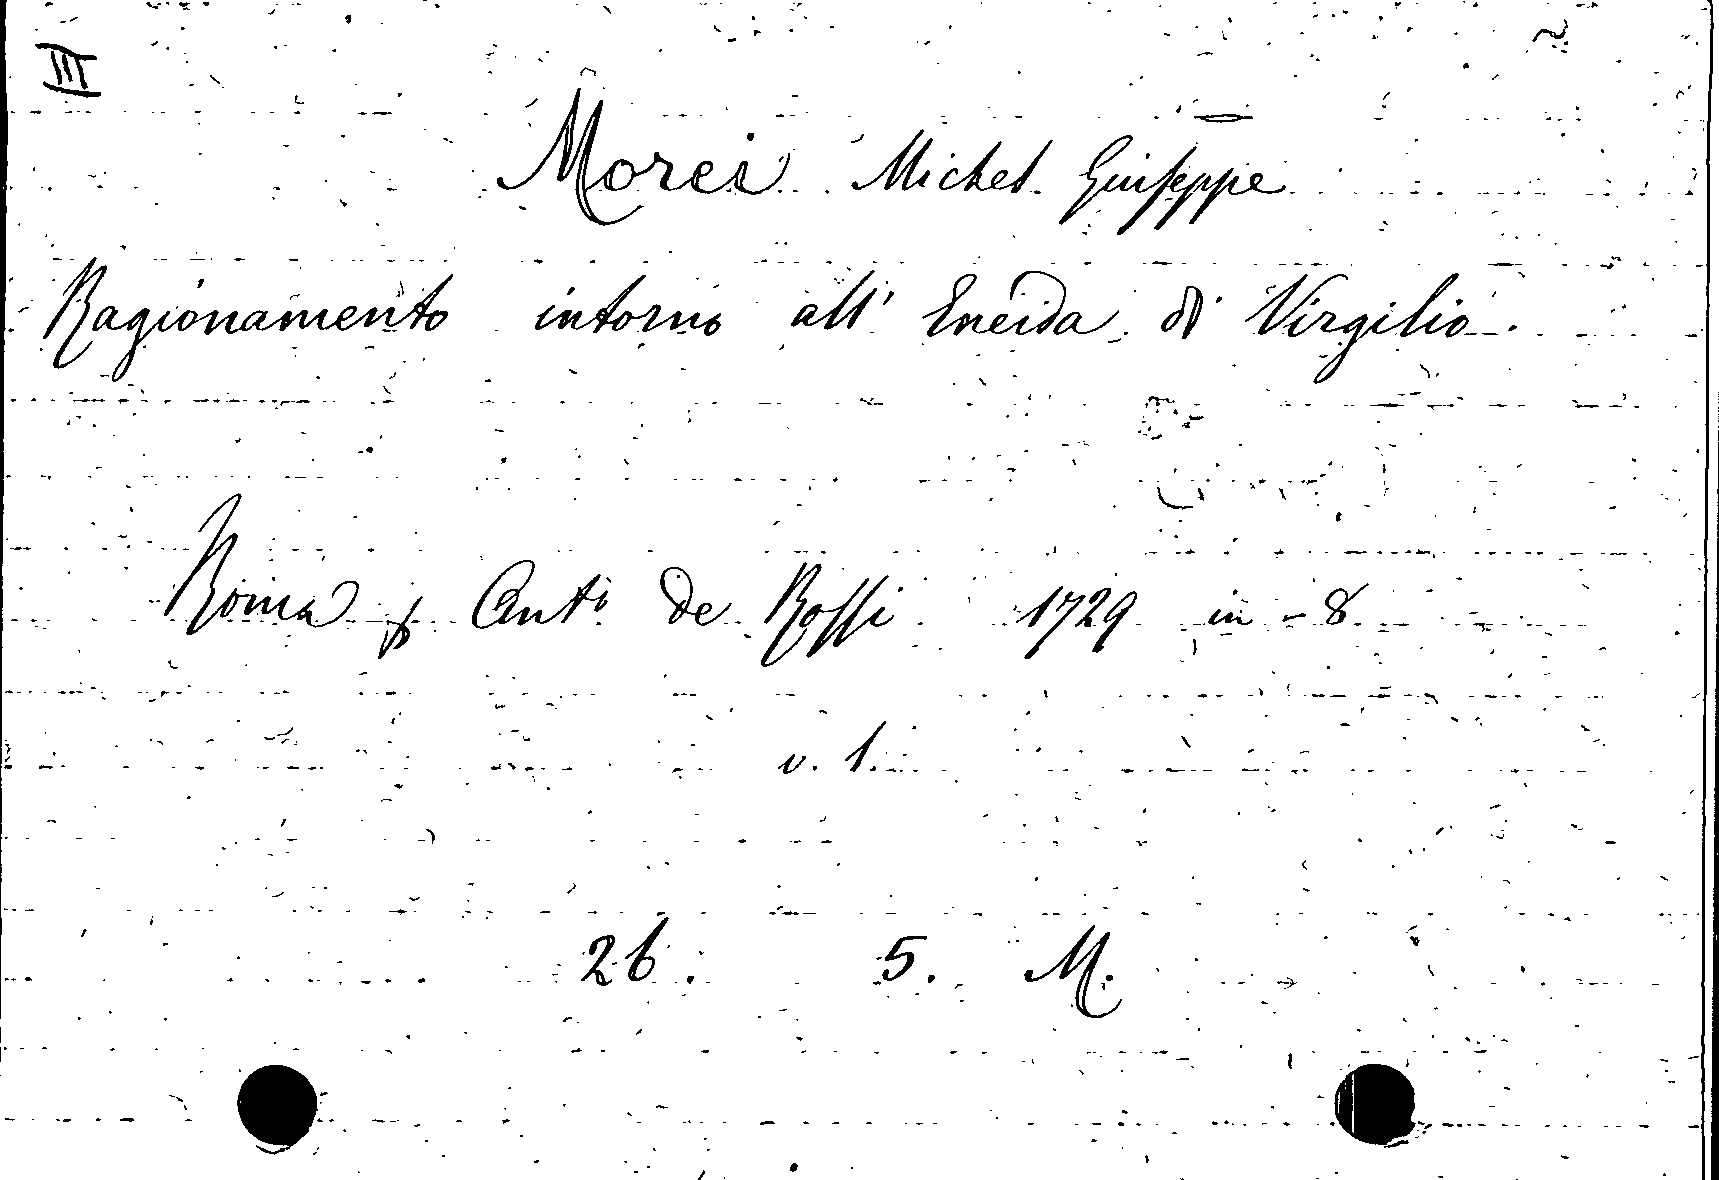 III
Morei Michel Giuseppe
Ragionamento intorno all' Eneida di Virgilio.
Roma p Anto de Rossi 1729 in-8
v. 1.
26. 5. M.